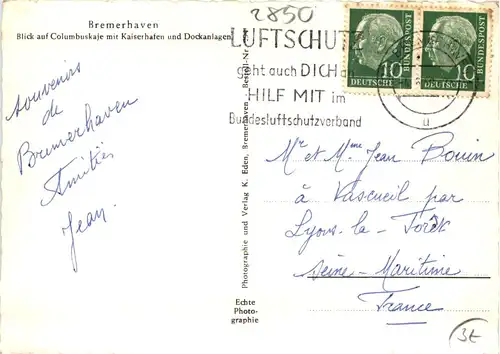 2850
Bremerhaven
Blick auf Columbuskaje mit Kaiserhafen und Dockanlagen
LUFTSCHUTZ
geht auch DICH
HILF MIT im
Bundesluftschutzverband
DEUTSCHE 10 BUNDESPOST
DEUTSCHE 10 BUNDESPOST
u
souvenirs
de
Bremerhaven
Amitiés
Jean.
Photographie und Verlag K. Eden, Bremerhaven
Bestell-Nr.
Echte
Photo-
graphie
Mr et Mme Jean Bouin
à Vascueil par
Lyons-la-Forêt
Seine-Maritime
France
3€